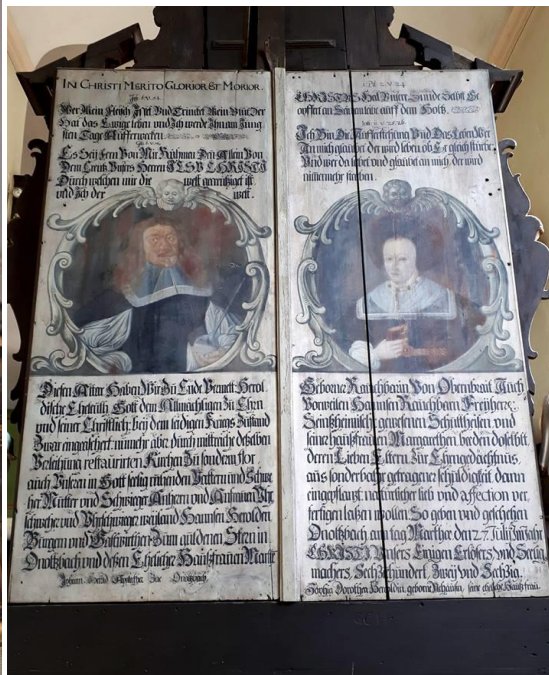 IN CHRISTI MERITO GLORIOR ET MORIOR.
Wer Mein Fleisch Iset Und Trincket Mein Blut Der
Hat das Ewige leben und Ich werde Ihn am Jüng
sten Tage Aufferwecken.
Es Sey fern Von Mir Rühmen Den Allein Von
Dem Creutz Unsers Herren JESU CHRISTI
Durch welchen mir die welt gecreutziget ist
und Ich der welt.
Diesen Altar Haben Wir Zu Ende Bemelt Herol
dische Eheleuth Gott dem Allmächtigen Zu Ehrn
und seiner Christlich: bey dem leidigen Kriegs Zustand
Zwar eingeäscherten nunmehr aber durch mittreiche desselben
Verleihung restaurirten Kirchen Zu sonderm flor
auch Unsern in Gott seelig ruhenden Vattern und Schwe
her Mütter und Schwieger Anherrn und Anfrauen
weyland Hannsen Herolden
Bürgern und Gastgebern Zum güldenen Stern in
Onoltzbach und deßen Ehelicher Haußfrauen Marg
Johann Herold Onoltzbach.
CHRISTUS Hat Unsere Sünde Selbst Ge
opffert an Seinem leibe auf dem Holtz.
Ich Bin Die Aufferstehung Und Das Leben Wer
An mich glaubet der wird leben ob Er gleich stürbe
Und wer da lebet und glaubet an mich der wird
nimmermehr sterben.
Geborne Rauchbarin Von Obernbrait Auch
Vorweilen Hannsen Rauchbarn Freyherr:
Seinßheimisch gewesenen Schultheisen und
seine haußfrauen Margarethen beeden doselbst,
deren Lieben Eltern Zur Ehrngedächtnus,
aus sonderbahr getragener schüldigkeit dann
eingepflantzt natürlicher lieb und affection ver
fertigen laßen wollen So geben und geschehen
Onoltzbach am tag Marthæ den 27. Julii Im Jahr
CHRISTI Unsers Einigen Erlösers und Seelig
machers, Sechzehundert, Zwey und Sechzig.
Sophia Dorothea Heroldin, geborne seine eheliche Hausfrau.